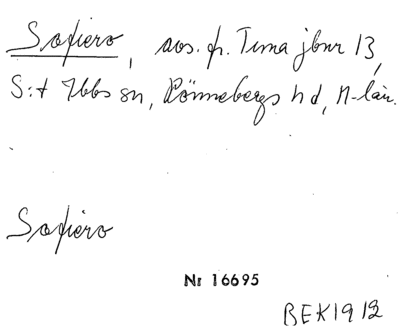 Sofiero, avs. fr. Tinra jbnr 13,
S:t Ibbs sn, Rönnebergs hd, M-län.
Sofiero
Nr 16695
BEK 1912